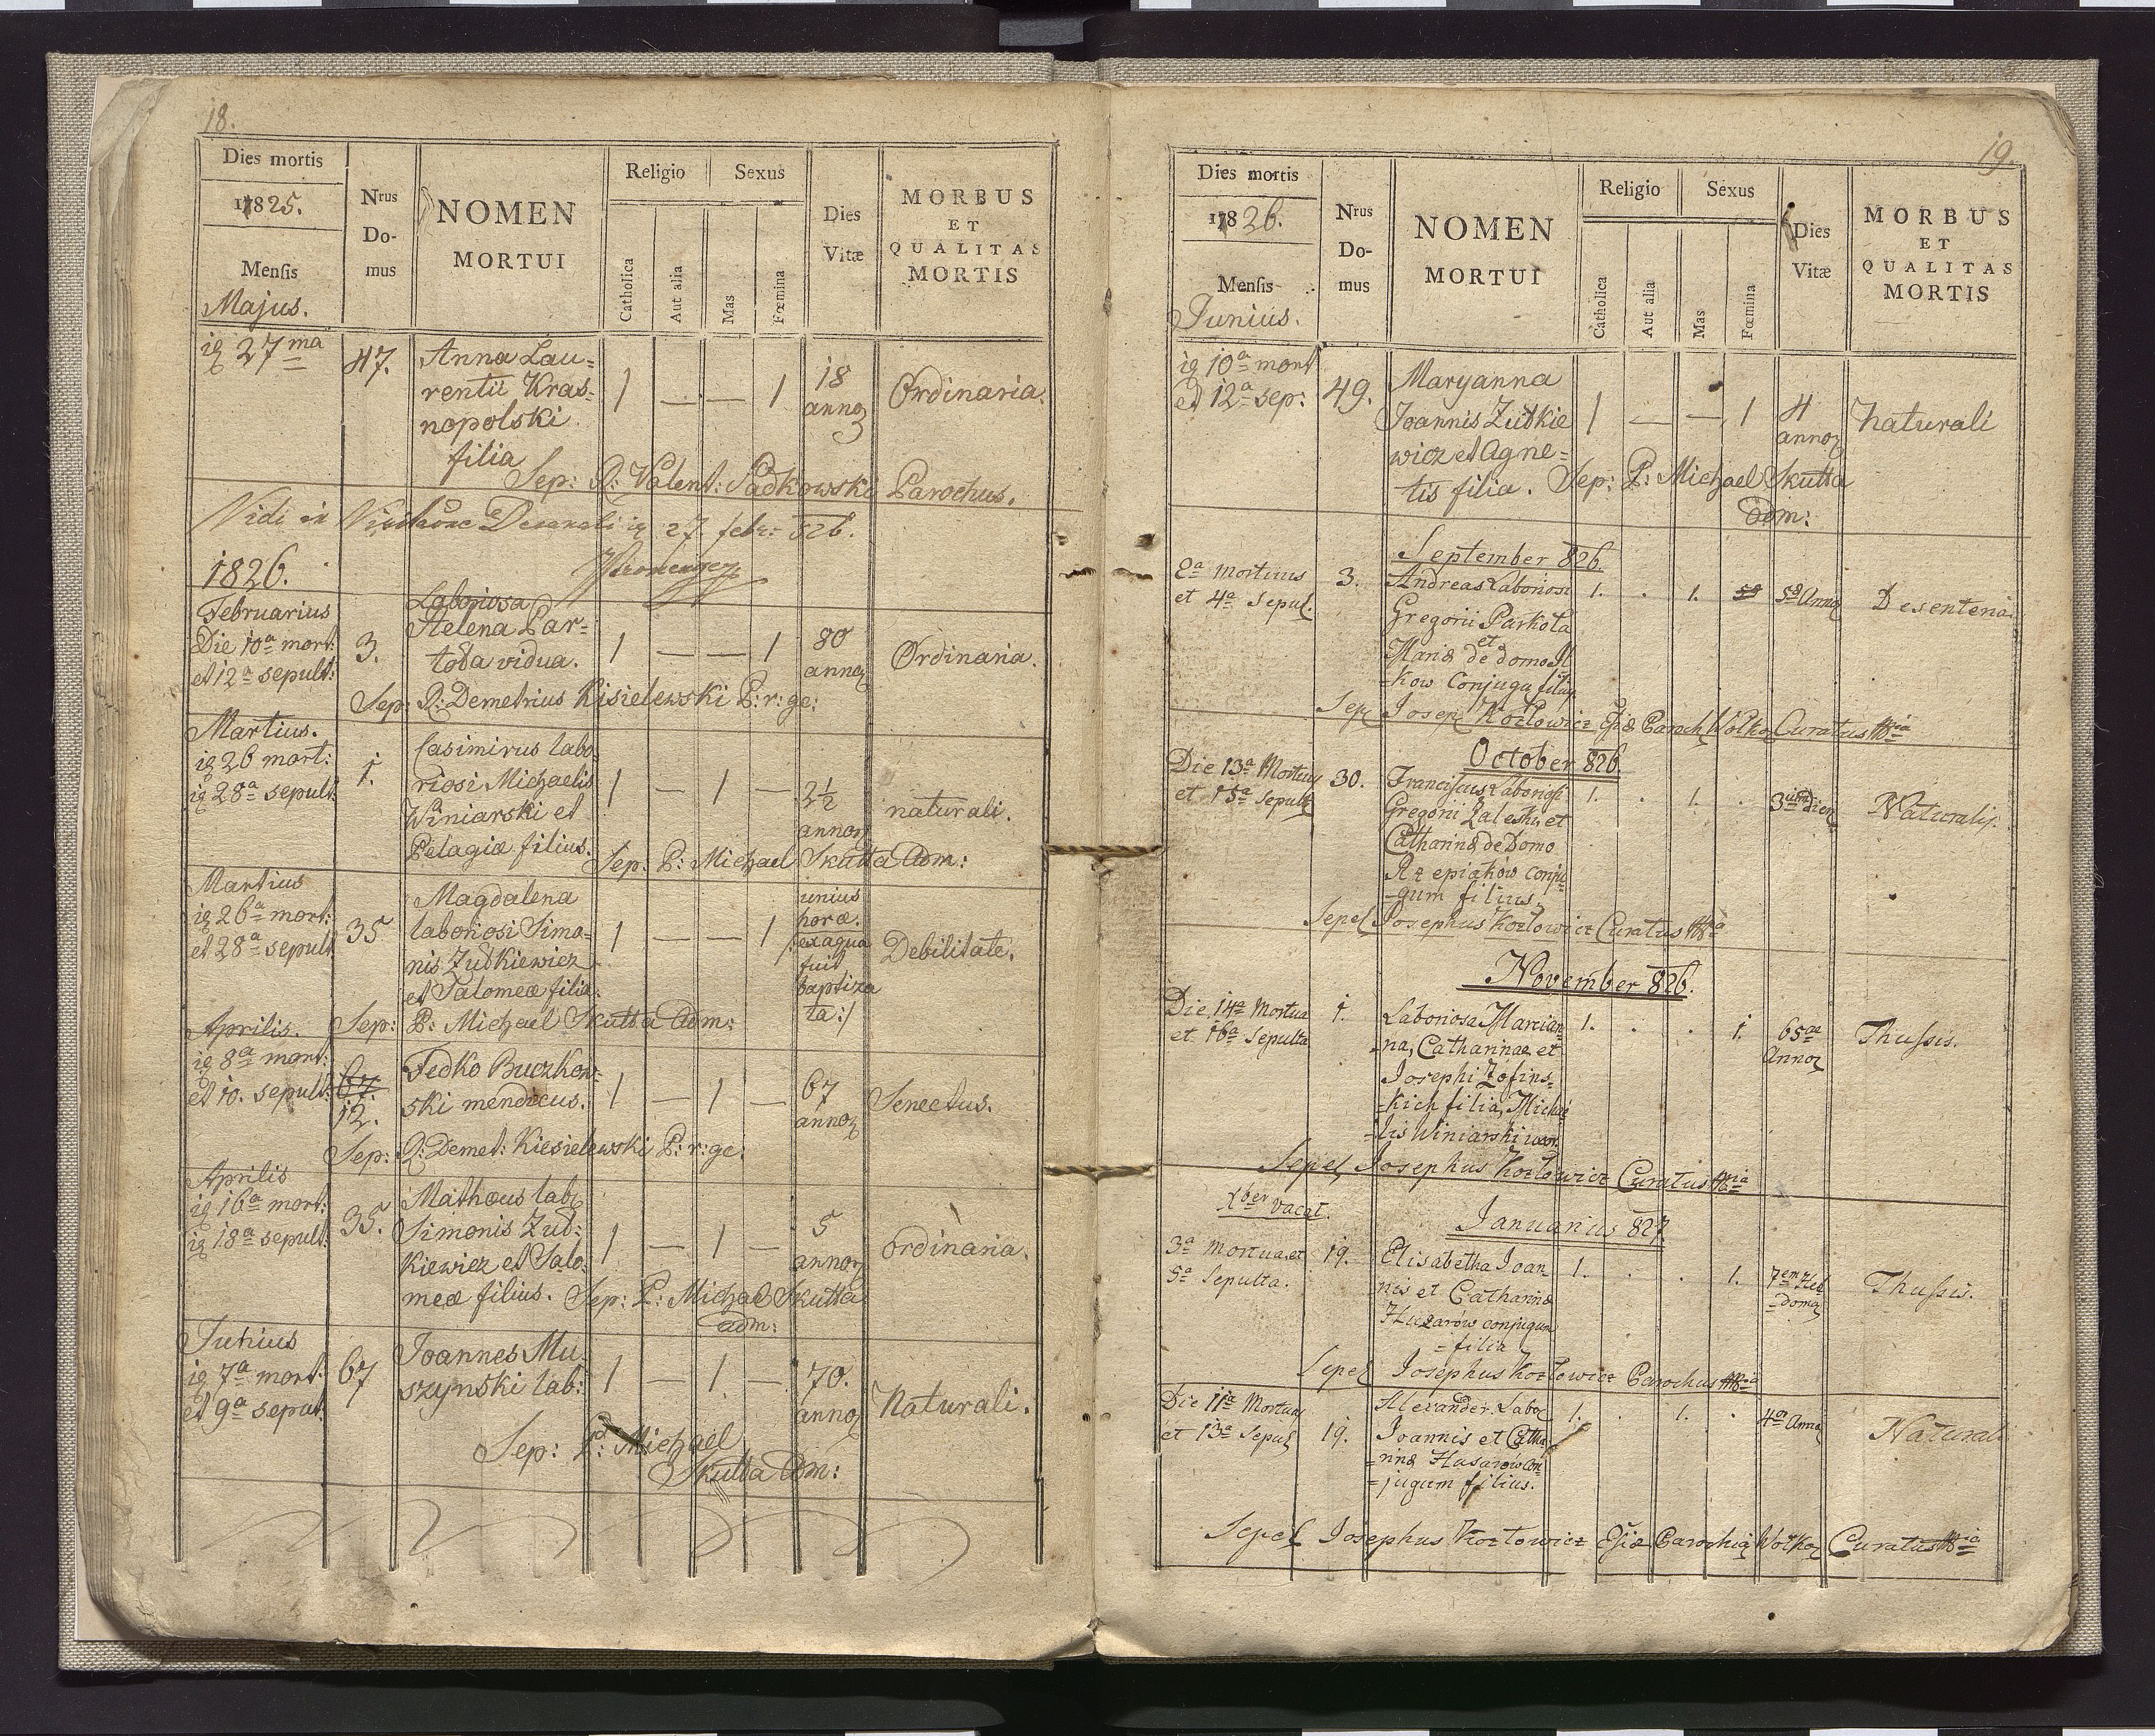 18.
Dies mortis
1825.
Mensis
Majus.
Nrus
Do-
mus
NOMEN
MORTUI
Religio
Catholica
Aut alia
Sexus
Mas
Fœmina
Dies
Vitæ
MORBUS
ET
QUALITAS
MORTIS
27ma
47.
Anna Lau=
rentii Kras=
nopolski
filia
1 — — 1
18
annoȝ
Ordinaria.
Sep: R: Valent: Sadkowski Parochus.
Vidi in Decanali 27. febr: 826.
1826.
Februarius
Die 10a mort:
et 12a sepult:
3.
Laboriosa
Helena Par=
toba vidua.
1 — — 1
80
annoȝ
Ordinaria.
Sep: R: Demetrius Kisielewski P:r:ge:
Martius.
26 mort:
28a sepult:
1.
Casimirus labo
riosi Michaelis
Winiarski et
Pelagiæ filius.
1 — 1 —
2½
annoȝ
naturali.
Sep: P: Michael Skutta Adm:
Martius
26a mort:
et 28a sepult
35
Magdalena
laboriosi Simo=
nis Zudkiewicz
et Salomeæ filia.
1 — — 1
unius
horæ.
/:ex aqua
fuit
baptiza
ta:/
Debilitate.
Sep: P: Michael Skutta Adm:
Aprilis.
8a mort:
et 10. sepult:
67.
12.
Fedko Buczkow=
ski mendicus.
1 — 1 —
67
annoȝ
Senectus.
Sep: R: Demet: Kiesielewski P:r:ge:
Aprilis
16a mort:
18a sepult:
35.
Mathæus lab:
Simonis Zud:
kiewicz et Salo:
meæ filius.
1 — 1 —
5
annoȝ
ordinaria.
Sep: P: Michael Skutta
adm:
Junius
7a mort:
et 9a sepul:
67
Joannes Mu
szynski lab:
1 — 1. —
70.
annoȝ
Naturali.
Sep: P: Michael
Skutta Adm:
19.
Dies mortis
1826.
Mensis
Junius.
Nrus
Do-
mus
NOMEN
MORTUI
Religio
Catholica
Aut alia
Sexus
Mas
Fœmina
Dies
Vitæ
MORBUS
ET
QUALITAS
MORTIS
10a mort
et 12a sep:
49.
Maryanna
Joannis Zudkie
wicz et Agne=
tis filia.
1 — — 1
4
annoȝ
Naturali
Sep: P: Michael Skutta
Adm:
September 826.
2a Mortuus
et 4a Sepul.
3.
Andreas Laboriosi
Gregorii Parkota
et
Mariæ de domo Il
=kow Conjugu filius
1. . 1. 58
58 Annoȝ
Desenteria
Sepel Joseph Kozłowicz Paroch Wołkoȝ Curatus
October 826.
Die 13a Mortuus
et 15a Sepult
30.
Franciscus Laboriosi
Gregorii Zaleski et
Catharinæ de Domo
Rzepiakow conju
=gum filius.
1. . 1. .
3um dier
Naturalis.
Sepel Josephus Kozłowicz Curatus
November 826.
Die 14a Mortua
et 16a Sepulta
1.
Laboriosa Marcian
=na, Catharinae et
Josephi Zofins=
=kich filia, Michae
=lis Winiarski uxor.
1. . . 1.
65aa
Annoȝ
Thussis.
Sepel Josephus Kozłowicz Curatus
Xber vacat.
Januarius 827.
3a Mortua et
5a Sepulta.
19.
Elisabetha Joan=
nis et Catharinæ
Huzarow conjugum
=filia
1. . . 1.
7em Heb
=domaȝ
Thussis.
Sepel Josephus Kozłowicz Parochus
Die 11a Mortuus
et 13a Sepul
19.
Alexander Labor
Joannis et Catha
=rinæ Husarow Con
=jugum filius.
1. . 1. .
4a Annoȝ
Naturali
Sepel Josephus Kozłowicz Parochiȝ Wołkoȝ Curatus